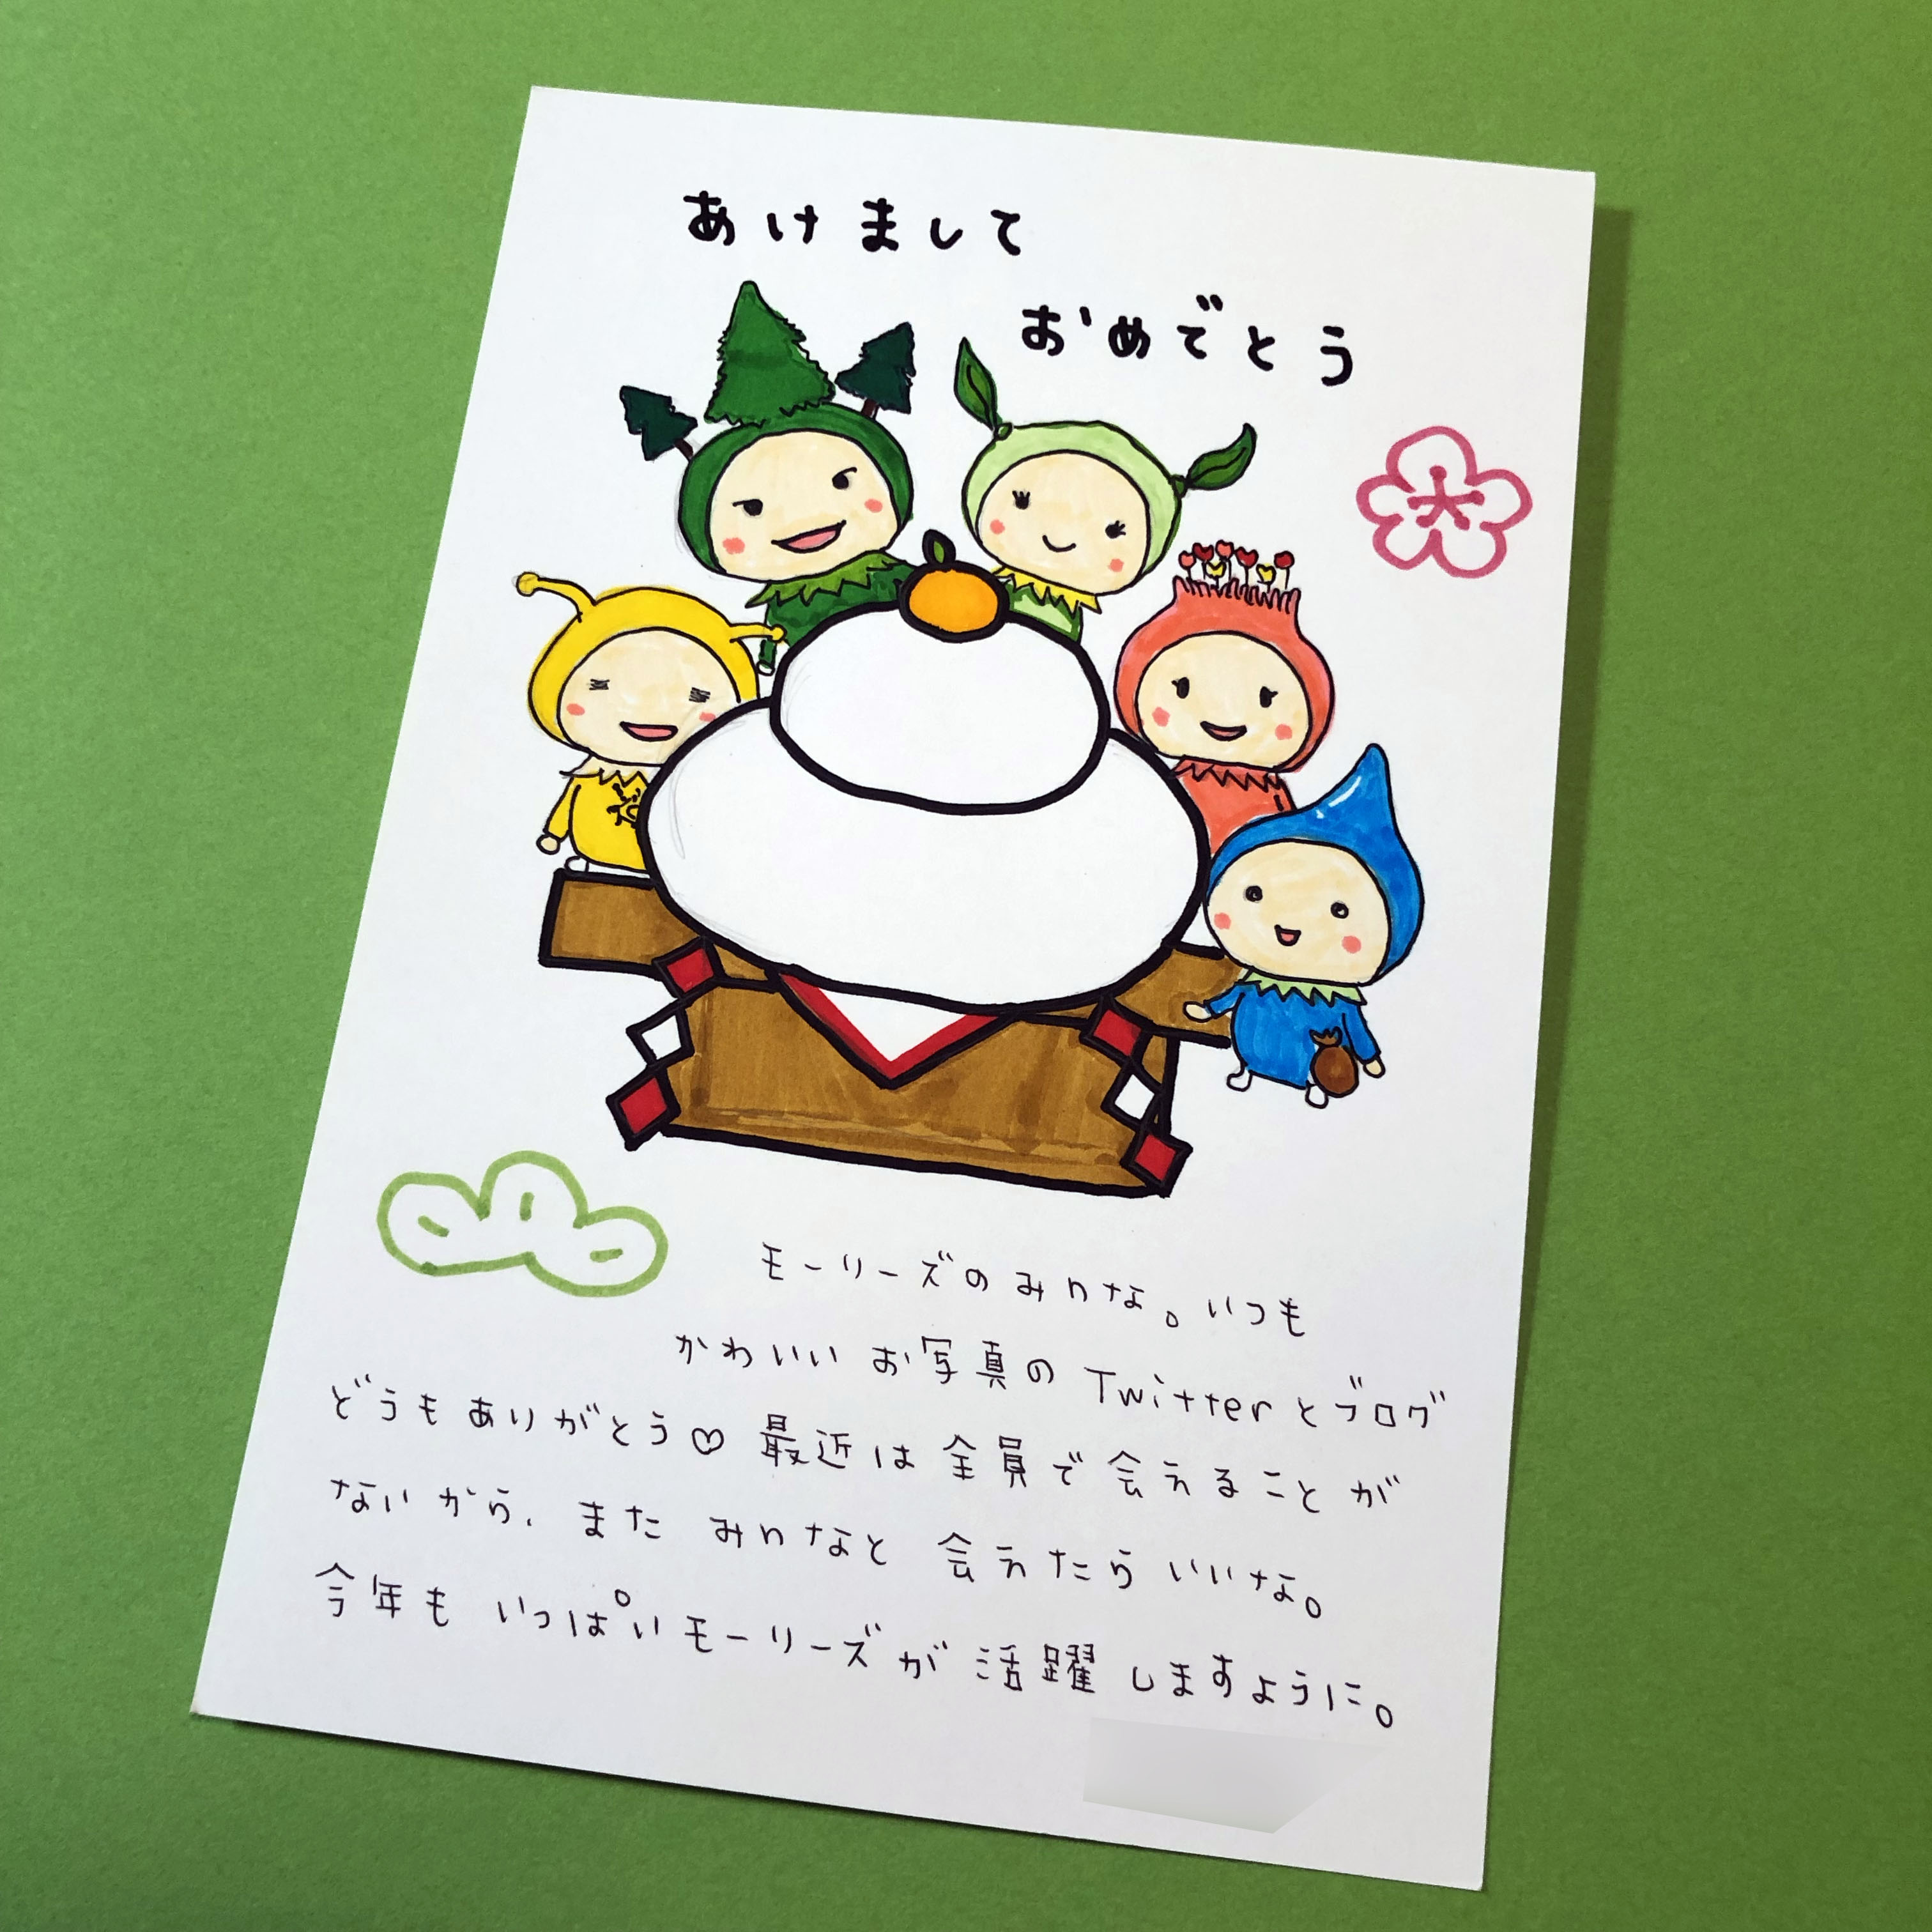 あけまして
おめでとう
モーリーズのみんな。いつも
かわいいお写真のTwitterとブログ
どうもありがとう♡最近は全員で会えることが
ないから、またみんなと会えたらいいな。
今年もいっぱいモーリーズが活躍しますように。